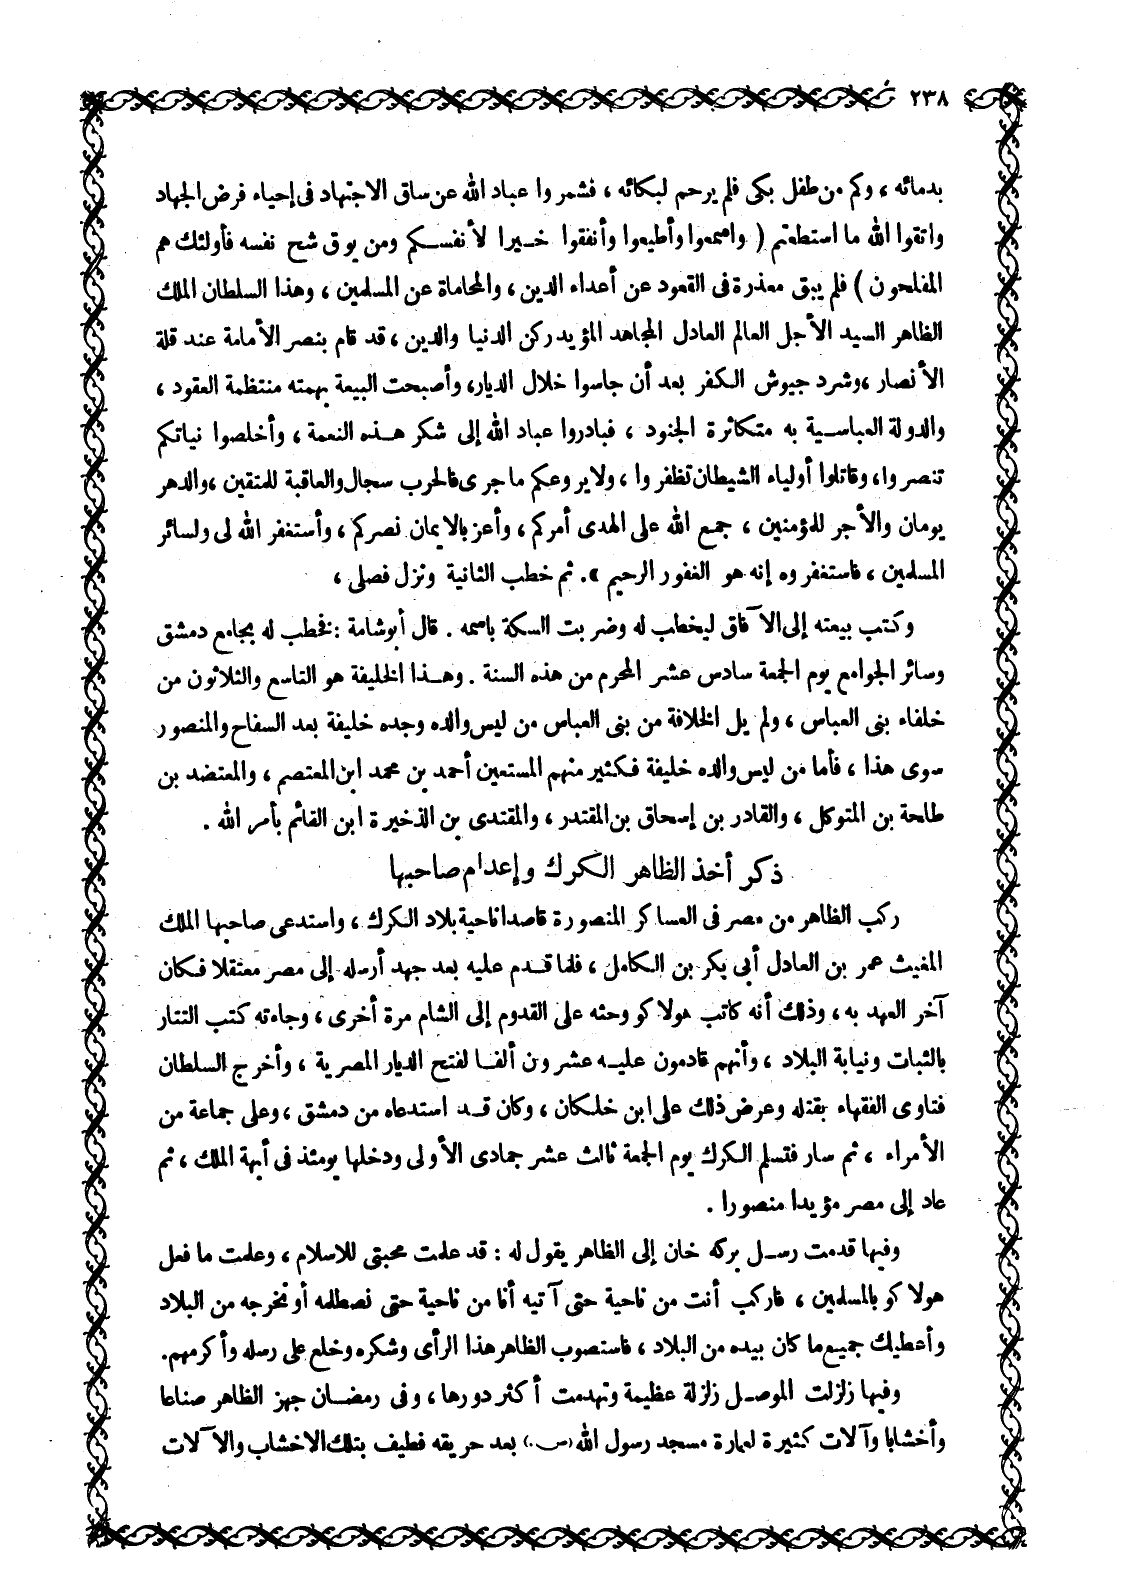 ٢٣٨
بدمائه ، وكم من طفل بكى فلم يرحم لبكائه ، فشمروا عباد الله عن ساق الاجتهاد فى إحياء فرض الجهاد
واتقوا الله ما استطعتم ( واسمعوا وأطيعوا وأنفقوا خيرا لأنفسكم ومن يوق شح نفسه فأولئك هم
المفلحون ) فلم يبق معذرة فى القعود عن أعداء الدين ، والمحاماة عن المسلمين ، وهذا السلطان الملك
الظاهر السيد الأجل العالم العادل المجاهد المؤيد ركن الدنيا والدين ، قد قام بنصر الأمامة عند قلة
الأنصار ، وشرد جيوش الكفر بعد أن جاسوا خلال الديار، وأصبحت البيعة بهمته منتظمة العقود ،
والدولة العباسية به متكاثرة الجنود ، فبادروا عباد الله إلى شكر هذه النعمة ، وأخلصوا نياتكم
تنصروا، وقاتلوا أولياء الشيطان تظفروا ، ولايروعكم ماجرى فالحرب سجال والعاقبة للمتقين ، والدهر
يومان والأجر للمؤمنين ، جمع الله على الهدى أمركم ، وأعز بالايمان نصركم ، وأستغفر الله لى ولسائر
المسلمين ، فاستغفروه إنه هو الغفور الرحيم ». ثم خطب الثانية ونزل فصلى ،
وكتب بيعته إلى الآفاق ليخطب له وضربت السكة باسمه . قال أبوشامة : فخطب له بجامع دمشق
وسائر الجوامع يوم الجمعة سادس عشر المحرم من هذه السنة . وهذا الخليفة هو التاسع والثلاثون من
خلفاء بنى العباس ، ولم يل الخلافة من بنى العباس من ليس والده وجده خليفة بعد السفاح والمنصور
سوى هذا ، فأما من ليس والده خليفة فكثير منهم المستعين أحمد بن محمد ابن المعتصم ، والمعتضد بن
طلحة بن المتوكل ، والقادر بن إسحاق بن المقتدر ، والمقتدى بن الذخيرة ابن القائم بأمر الله .
ذكر أخذ الظاهر الكرك وإعدام صاحبها
ركب الظاهر من مصر فى العساكر المنصورة قاصدا ناحية بلاد الكرك ، واستدعى صاحبها الملك
المغيث عمر بن العادل أبي بكر بن الكامل ، فلما قدم عليه بعد جهد أرسله إلى مصر معتقلا فكان
آخر العهد به ، وذلك أنه كاتب هولاكو وحثه على القدوم إلى الشام مرة أخرى ، وجاءته كتب التتار
بالثبات ونيابة البلاد ، وأنهم قادمون عليه عشرون ألفا لفتح الديار المصرية ، وأخرج السلطان
فتاوى الفقهاء بقتله وعرض ذلك على ابن خلكان ، وكان قد استدعاه من دمشق ، وعلى جماعة من
الأمراء ، ثم سار فتسلم الكرك يوم الجمعة ثالث عشر جمادى الأولى ودخلها يومئذ فى أبهة الملك ، ثم
عاد إلى مصر مؤيدا منصورا .
وفيها قدمت رسل بركه خان إلى الظاهر يقول له : قد علمت محبتى للاسلام ، وعلمت ما فعل
هولاكو بالمسلمين ، فاركب أنت من ناحية حتى آتيه أنا من ناحية حتى نصطلمه أو نخرجه من البلاد
وأعطيك جميع ما كان بيده من البلاد ، فاستصوب الظاهر هذا الرأى وشكره وخلع على رسله وأكرمهم.
وفيها زلزلت الموصل زلزلة عظيمة وتهدمت أكثر دورها ، وفى رمضان جهز الظاهر صناعا
وأخشابا وآلات كثيرة لعمارة مسجد رسول الله (ص.) بعد حريقه فطيف بتلك الاخشاب والآلات